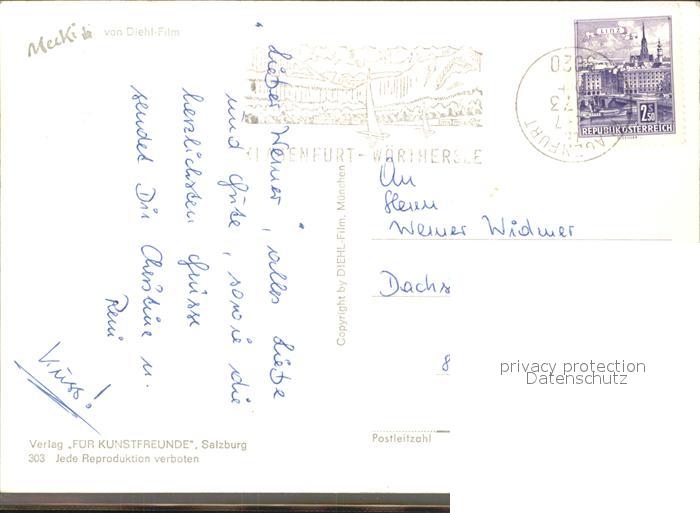 Mecki
von Diehl-Film
Lieber Werner, alles Liebe
und Gute, sowie die
herzlichsten Grüsse
sendet Dir Christine u.
Reni
KLAGENFURT-WÖRTHERSEE
LINZ
2.50
REPUBLIK ÖSTERREICH
9020
73
KLAGENFURT
An
Herrn
Werner Widmer
Dachs
8
privacy protection
Datenschutz
Postleitzahl
Copyright by DIEHL-Film, München
Verlag „FÜR KUNSTFREUNDE", Salzburg
303 Jede Reproduktion verboten